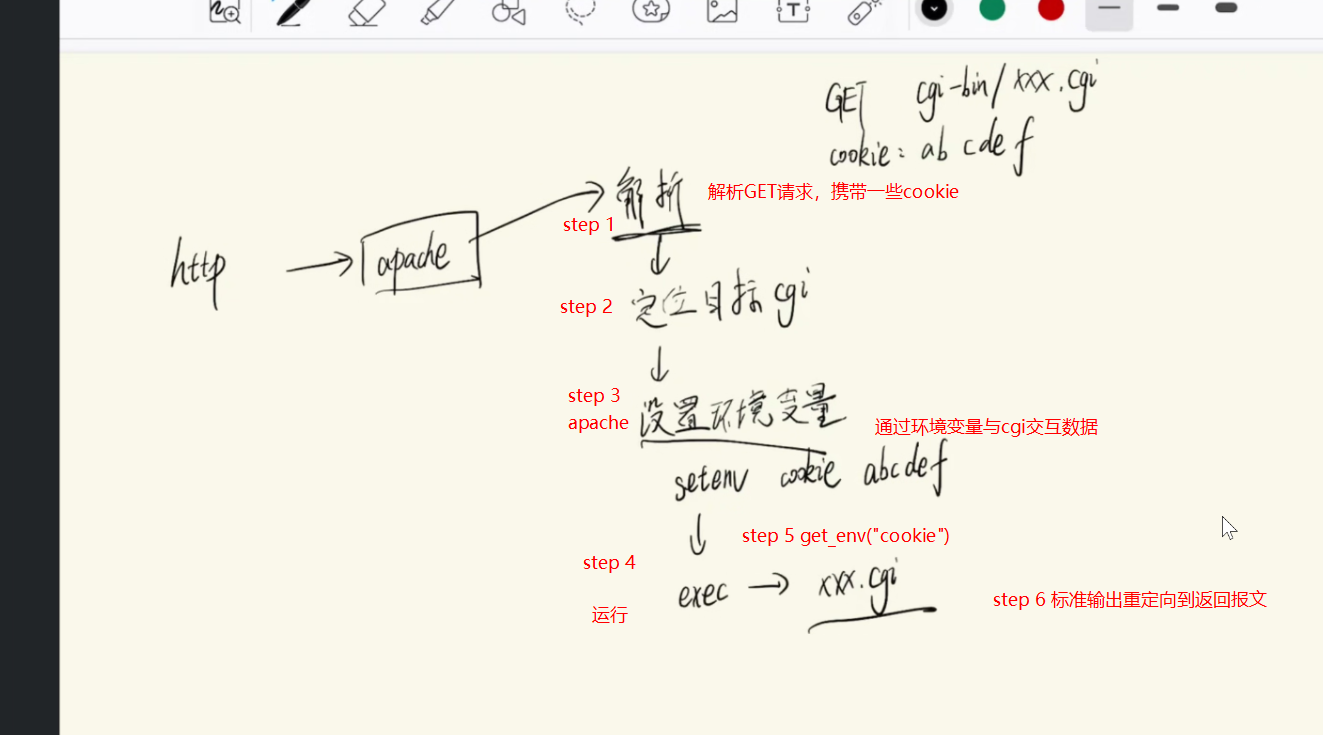 GET cgi-bin/xxx.cgi
cookie: abcdef
解析 解析GET请求，携带一些cookie
step 1
http
apache
step 2 定位目标cgi
step 3
apache 设置环境变量 通过环境变量与cgi交互数据
setenv cookie abcdef
step 5 get_env("cookie")
step 4
exec → xxx.cgi step 6 标准输出重定向到返回报文
运行